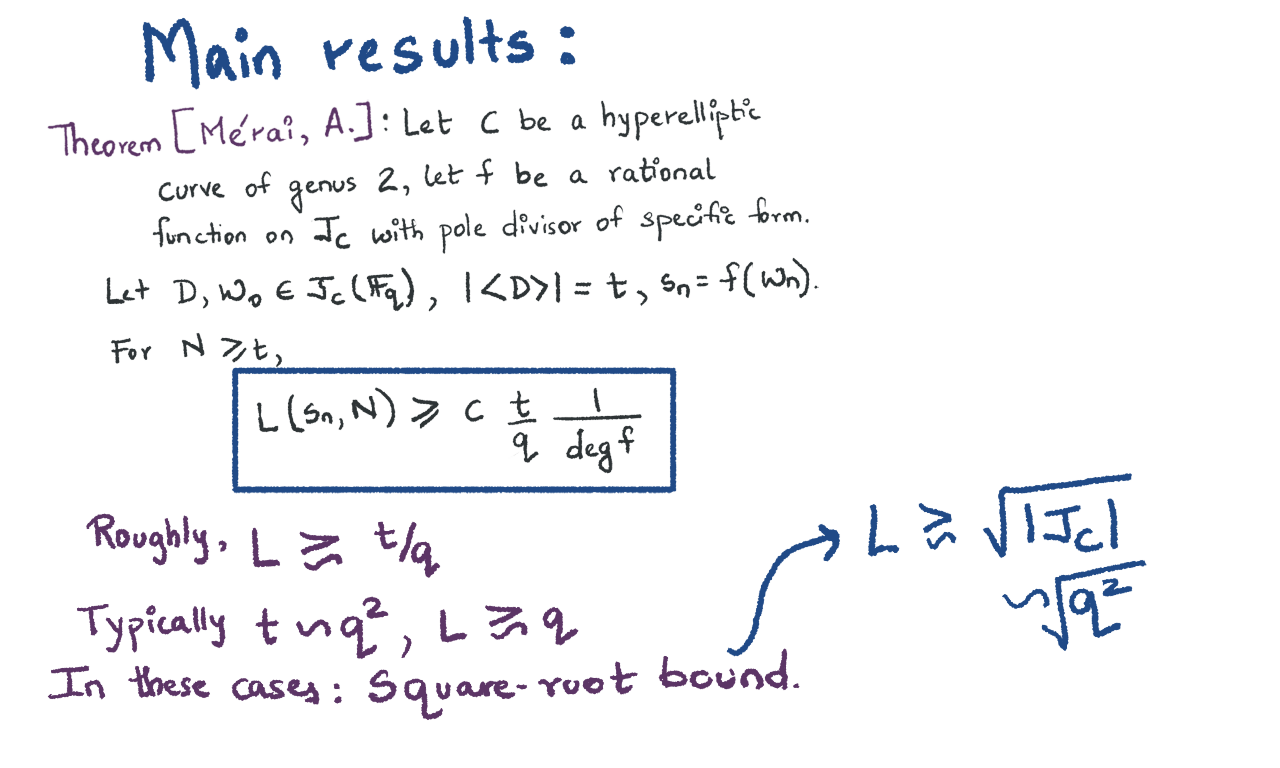 Main results:
Theorem [Mérai, A.]: Let C be a hyperelliptic
curve of genus 2, let f be a rational
function on J_C with pole divisor of specific form.
Let D, W_0 ∈ J_C(𝔽_q), |<D>| = t, s_n = f(W_n).
For N ⩾ t,
L(s_n, N) ⩾ c t/q 1/deg f
Roughly, L ≳ t/q
Typically t ~ q², L ≳ q
In these cases: Square-root bound.
L ≳ √|J_C|
~ √q²